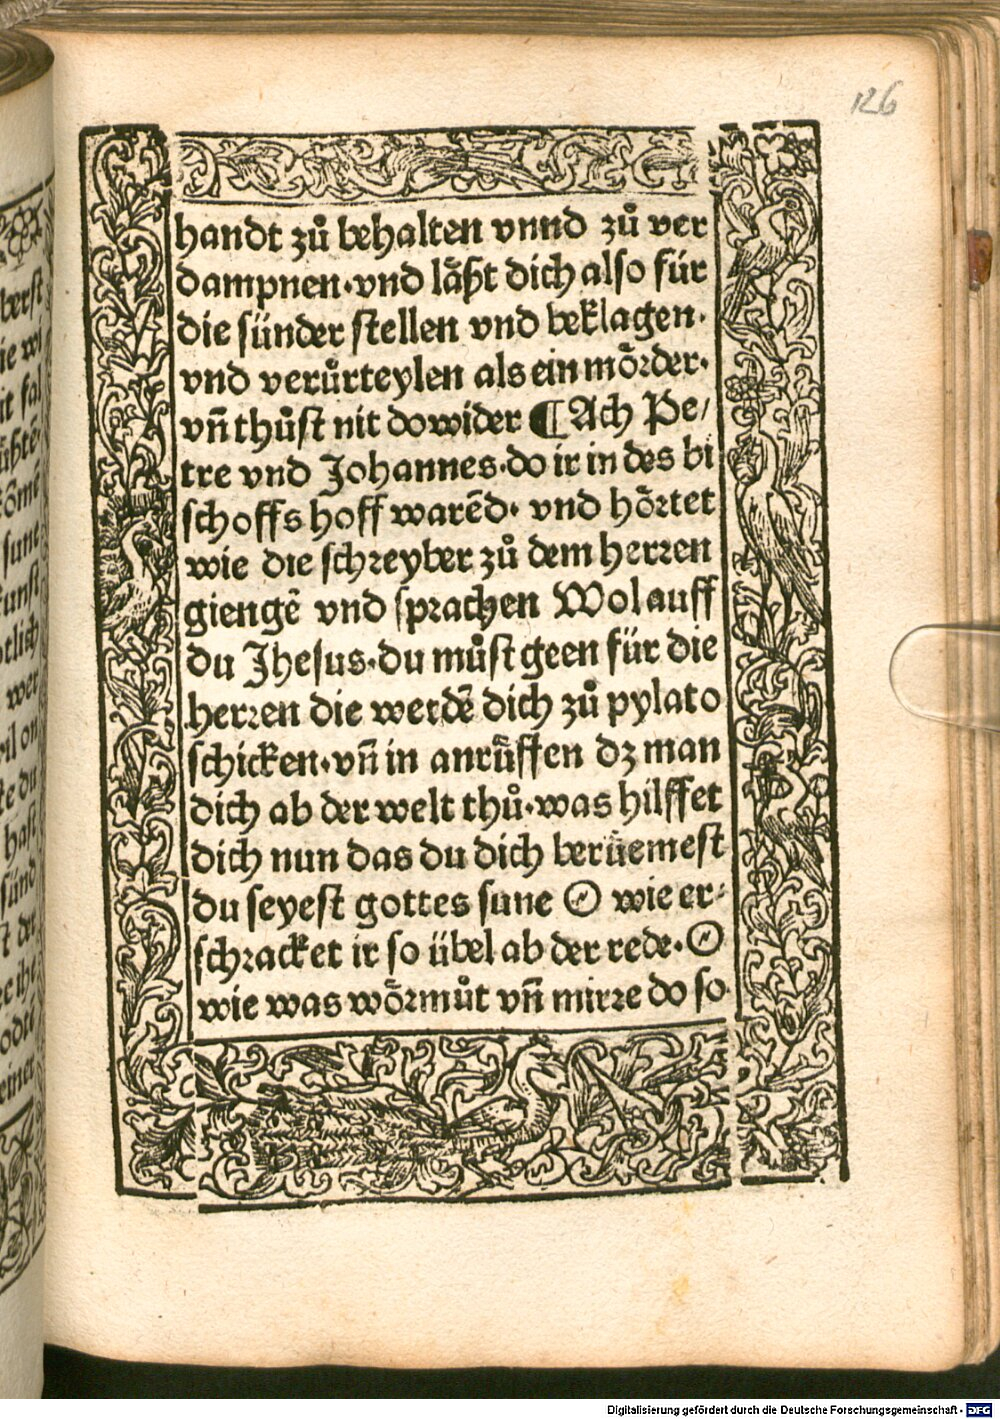 126
handt zů behalten vnnd zů ver
dampnen·vnd läßt dich also für
die sünder stellen vnd beklagen·
vnd verůrteylen als ein mörder·
vn̄ thůst nit dowider ¶ Ach Pe/
tre vnd Johannes·do ir in des bi
schoffs hoff warēd· vnd hörtet
wie die schreyber zů dem herren
giengē vnd sprachen Wolauff
du Jhesus·du můst geen für die
herren die werdē dich zů pylato
schicken·vn̄ in anrůffen dz man
dich ab der welt thů·was hilffet
dich nun das du dich berüemest
du seyest gottes sune O wie er⸗
schracket ir so übel ab der rede·O
wie was wörmůt vn̄ mirre do so
berst
ie wi
it fal
sune
tlich
wer
vil on
te du
hast
sünd
t der
einer
Digitalisierung gefördert durch die Deutsche Forschungsgemeinschaft - DFG